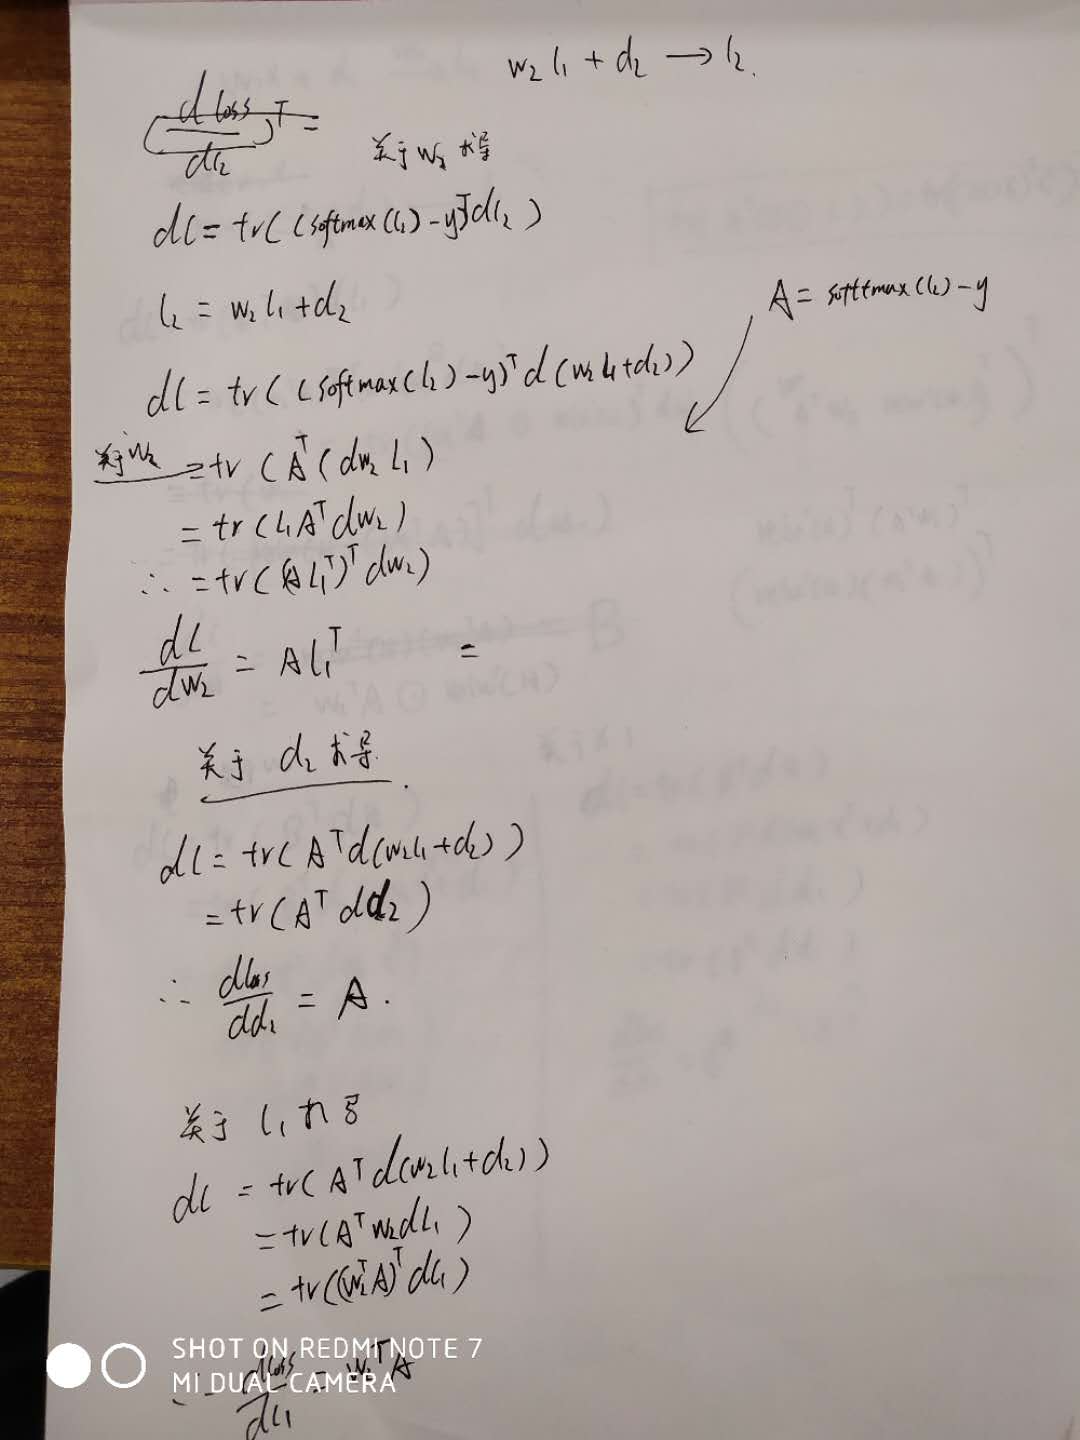 w₂ l₁ + d₂ → l₂.
(d loss / dl₂)ᵀ =
关于 w₂ 求导
dl = tr( (softmax(l₂) - y)ᵀ dl₂ )
l₂ = w₂ l₁ + d₂
A = softtmax(l₂) - y
dl = tr( (softmax(l₂) - y)ᵀ d (w₂ l₁ + d₂) )
关于 w₂ = tr ( Aᵀ ( dw₂ l₁ )
= tr ( l₁ Aᵀ dw₂ )
∴ = tr ( (A l₁ᵀ)ᵀ dw₂ )
dl / dw₂ = A l₁ᵀ =
关于 d₂ 求导.
dl = tr( Aᵀ d(w₂l₁ + d₂) )
= tr ( Aᵀ dd₂ )
∴ dloss / dd₂ = A .
关于 l₁ 求导
dl = tr( Aᵀ d(w₂l₁ + d₂) )
= tr( Aᵀ w₂ dl₁ )
= tr( (w₂ᵀ A)ᵀ dl₁ )
∴ dloss / dl₁ = w₂ᵀ A
SHOT ON REDMI NOTE 7
MI DUAL CAMERA